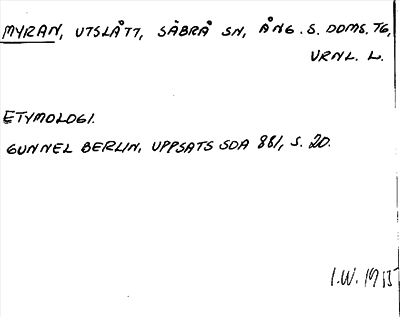 MYRAN, UTSLÅTT, SÄBRÅ SN, ÅNG. S. DOMS. TG,
URNL. L.
ETYMOLOGI.
GUNNEL BERLIN, UPPSATS SDA 881, S. 20.
I.W. 1985